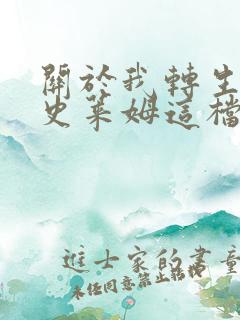 關於我轉生
史萊姆這檔
進士家的書童
未經同意禁止轉載